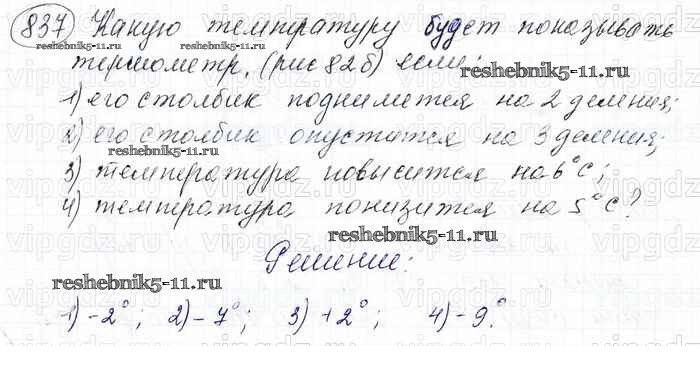 837 Какую температуру будет показывать
термометр, (рис 82б) если:
1) его столбик поднимется на 2 деления;
2) его столбик опустится на 3 деления;
3) температура повысится на 6°С;
4) температура понизится на 5°С?
Решение:
1) -2°; 2) -7°; 3) +2°; 4) -9°.
reshebnik5-11.ru
reshebnik5-11.ru
reshebnik5-11.ru
reshebnik5-11.ru
reshebnik5-11.ru
vipgdz.ru